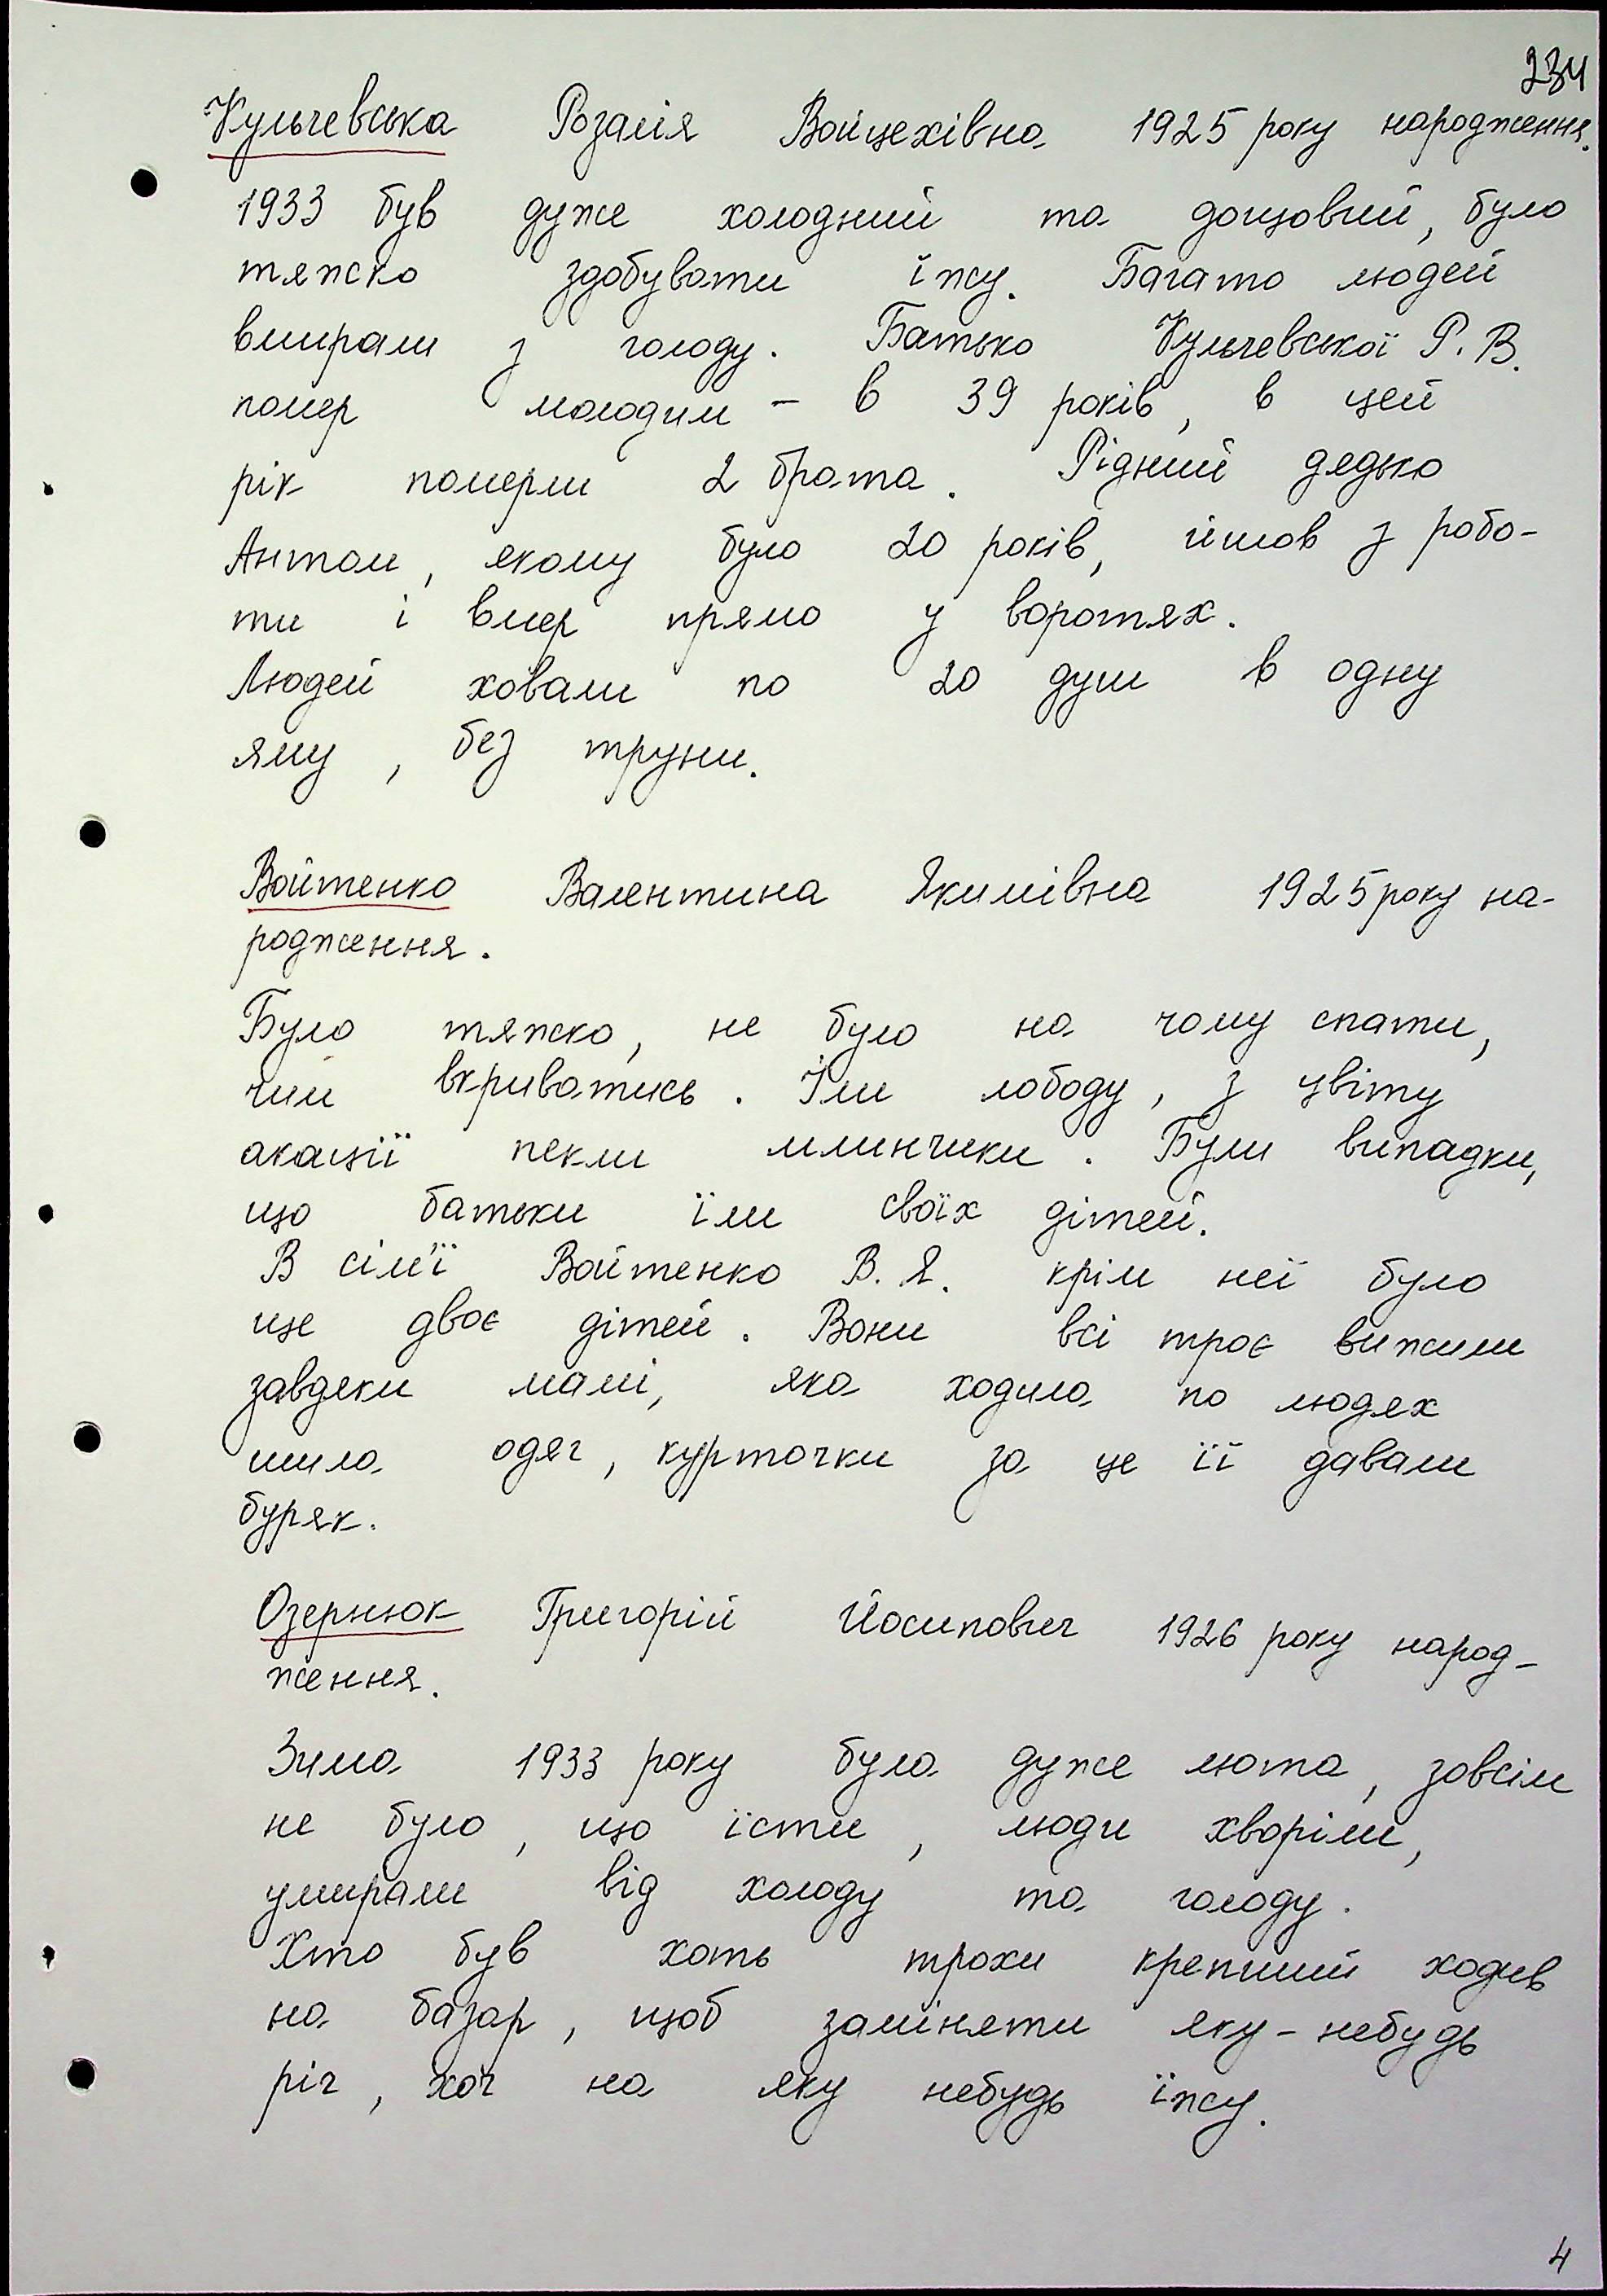 234
Кульчевська Розалія Войцехівна 1925 року народження.
1933 був дуже холодний та дощовий, було
тяжко здобувати їжу. Багато людей
вмирали з голоду. Батько Кульчевської Р. В.
помер молодим – в 39 років, в цей
рік померли 2 брата. Рідний дядько
Антон, якому було 20 років, йшов з робо-
ти і вмер прямо у воротях.
Людей ховали по 20 душ в одну
яму, без труни.
Войтенко Валентина Якимівна 1925 року на-
родження.
Було тяжко, не було на чому спати,
чим вкриватись. Їли лободу, з цвіту
акації пекли млинчики. Були випадки,
що батьки їли своїх дітей.
В сім'ї Войтенко В. Я. крім неї було
ще двоє дітей. Вони всі троє вижили
завдяки мамі, яка ходила по людях
шила одяг, курточки за це її давали
буряк.
Озернюк Григорій Йосипович 1926 року народ-
ження.
Зима 1933 року була дуже люта, зовсім
не було, що їсти, люди хворіли,
умирали від холоду та голоду.
Хто був хоть трохи крепший ходив
на базар, щоб заміняти яку-небудь
річ, хоч на яку небудь їжу.
4